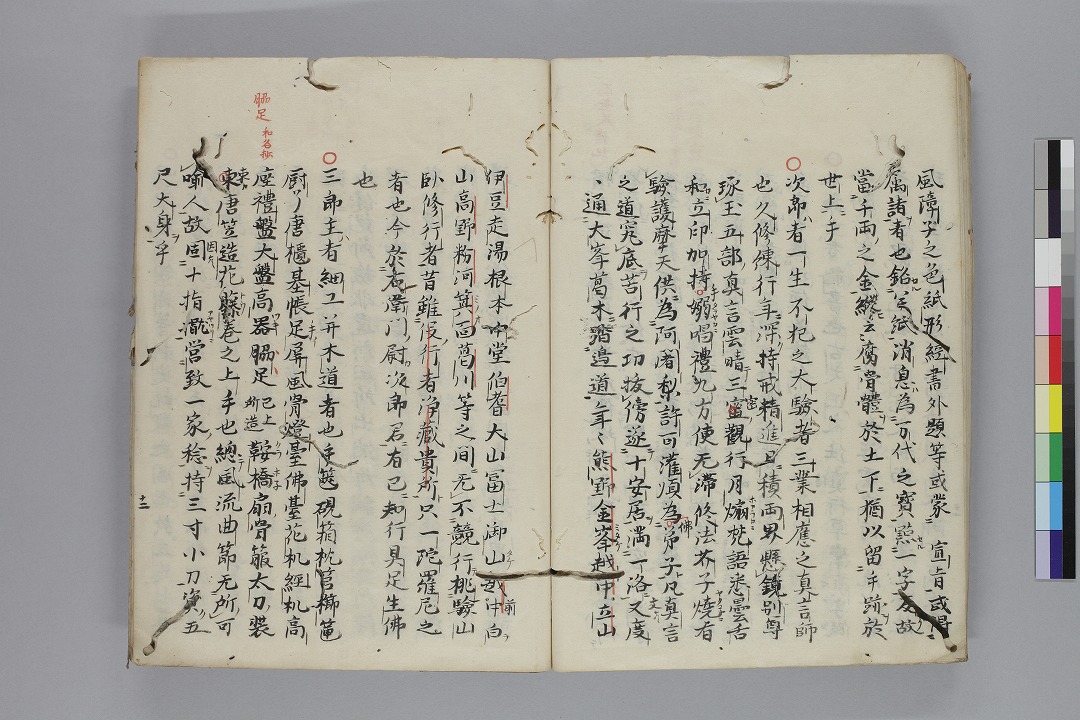 風障子之色紙形経書外題等或蒙宣旨或得
属諸者也銘筆紙消息為万代之寶點一字及故
當千両之金繆云腐骨體於土下猶以留手跡於
世上手
次郎者一生不犯之大驗者三業相應之真言師
也久修練行年深持戒精進日積両界懸鏡別尊
琢玉五部真言雲晴三密觀行月煽梵語悉曇舌
和立印加持嫋唱禮九方便无滞修法芥子焼有
驗護摩天供為阿闍梨許可灌頂為弟子凡真言
之道究底苦行之功抜傍遂十安居満一洛又度
々通大峯葛木踏邉道年々熊野金峯越中立山
伊豆走湯根本中堂伯耆大山冨士御山越前白
山高野粉河箕面葛川等之間无不競行挑驗山
臥修行者昔雖役行者浄蔵貴所只一陀羅尼之
者也今於右衛門尉次郎君有已知行具足生佛
也
三郎主者細工并木道者也手筥硯箱枕筥櫛筥
厨子唐櫃基帳足屏風骨燈臺佛臺花机經机高
座禮盤大盤高器脇足已上所造鞍橋扇骨簱太刀装
束唐笠造花縣巻之上手也總風流曲節无所可
喩人故固十指漑営致一家稔持三寸小刀資五
尺大身乎
脇足 和名鈔
十二